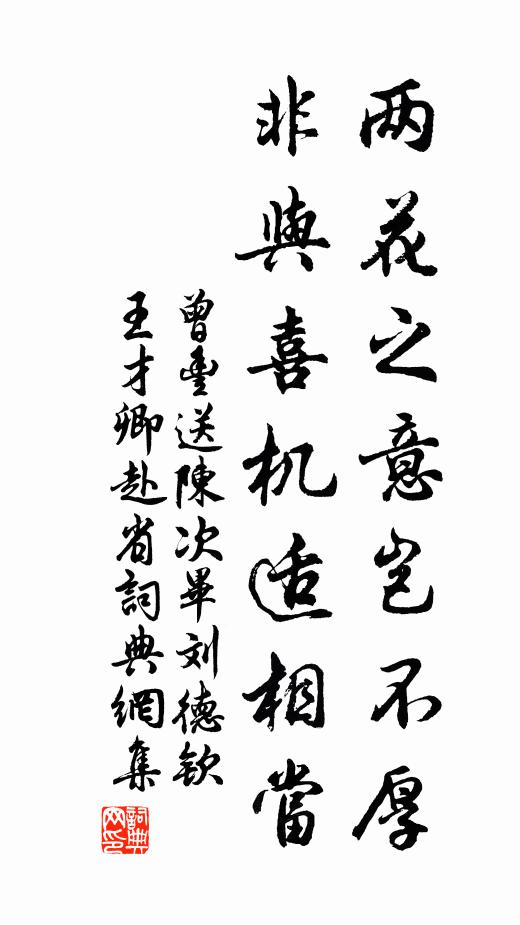 两花之意岂不厚
非與喜机适相當
曾豊送陳次畢刘德欽
王才卿赴省詞典網集
詞典网印